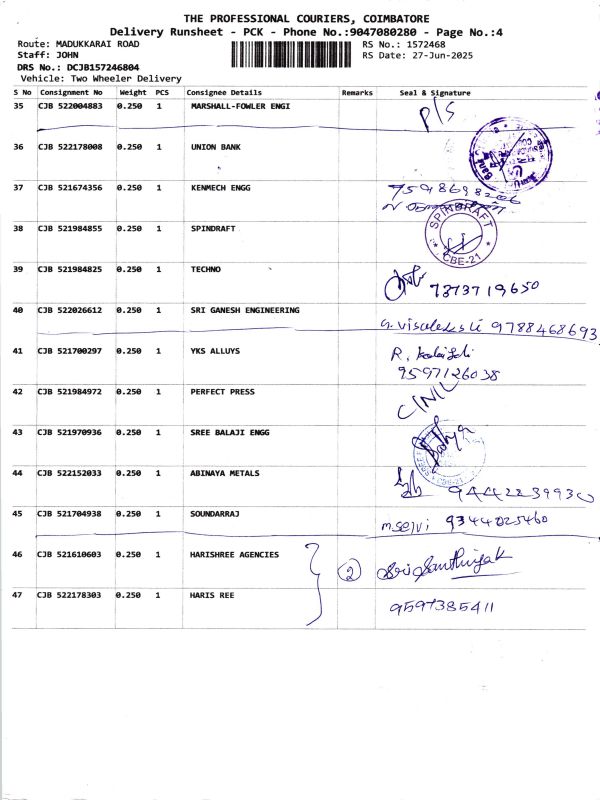 THE PROFESSIONAL COURIERS, COIMBATORE
Delivery Runsheet - PCK - Phone No.:9047080280 - Page No.:4
Route: MADUKKARAI ROAD RS No.: 1572468
Staff: JOHN RS Date: 27-Jun-2025
DRS No.: DCJB157246804
Vehicle: Two Wheeler Delivery
S No Consignment No Weight PCS Consignee Details Remarks Seal & Signature
35 CJB 522004883 0.250 1 MARSHALL-FOWLER ENGI P/S
36 CJB 522178008 0.250 1 UNION BANK
37 CJB 521674356 0.250 1 KENMECH ENGG 7598698206
38 CJB 521984855 0.250 1 SPINDRAFT SPINDRAFT CBE-21
39 CJB 521984825 0.250 1 TECHNO 7373719650
40 CJB 522026612 0.250 1 SRI GANESH ENGINEERING 9788468693
41 CJB 521700297 0.250 1 YKS ALLUYS R.
9597126038
42 CJB 521984972 0.250 1 PERFECT PRESS
43 CJB 521970936 0.250 1 SREE BALAJI ENGG CBE-21
44 CJB 522152033 0.250 1 ABINAYA METALS 9442239930
45 CJB 521704938 0.250 1 SOUNDARRAJ m.selvi 9344025460
46 CJB 521610603 0.250 1 HARISHREE AGENCIES 2
47 CJB 522178303 0.250 1 HARIS REE 9597385411